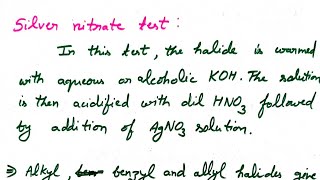 Silver nitrate test :
In this test, the halide is warmed
with aqueous or alcoholic KOH. The solution
is then acidified with dil HNO3 followed
by addition of AgNO3 solution.
⇒ Alkyl, benzyl and allyl halides give